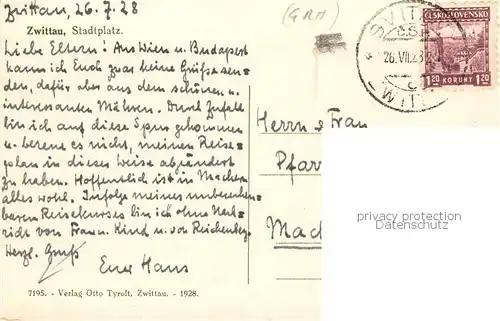 Zwittau, 26.7.28
(GRM)
Zwittau, Stadtplatz.
Liebe Eltern! Aus Wien u. Budapest
kann ich Euch zwar keine Grüße sen-
den, dafür aber aus dem schönen u.
interessanten Mähren. Durch Zufall
bin ich auf diese Spur gekommen
u. bereue es nicht, meinen Reise-
plan in dieser Weise abgeändert
zu haben. Hoffentlich ist in Machern
alles wohl. Infolge meines unberechen-
baren Reisekurses bin ich ohne Nach-
richt von Frau u. Kind u. von Reichenberg.
Herzl. Gruß
Euer Hans
7195. - Verlag Otto Tyrolt, Zwittau. - 1928.
SVIT
Č.S.P.
26.VII.28
WIT
ČESKOSLOVENSKO
1.20 KORUNY 1.20
Herrn u. Frau
Pfar
Mach
privacy protection
Datenschutz